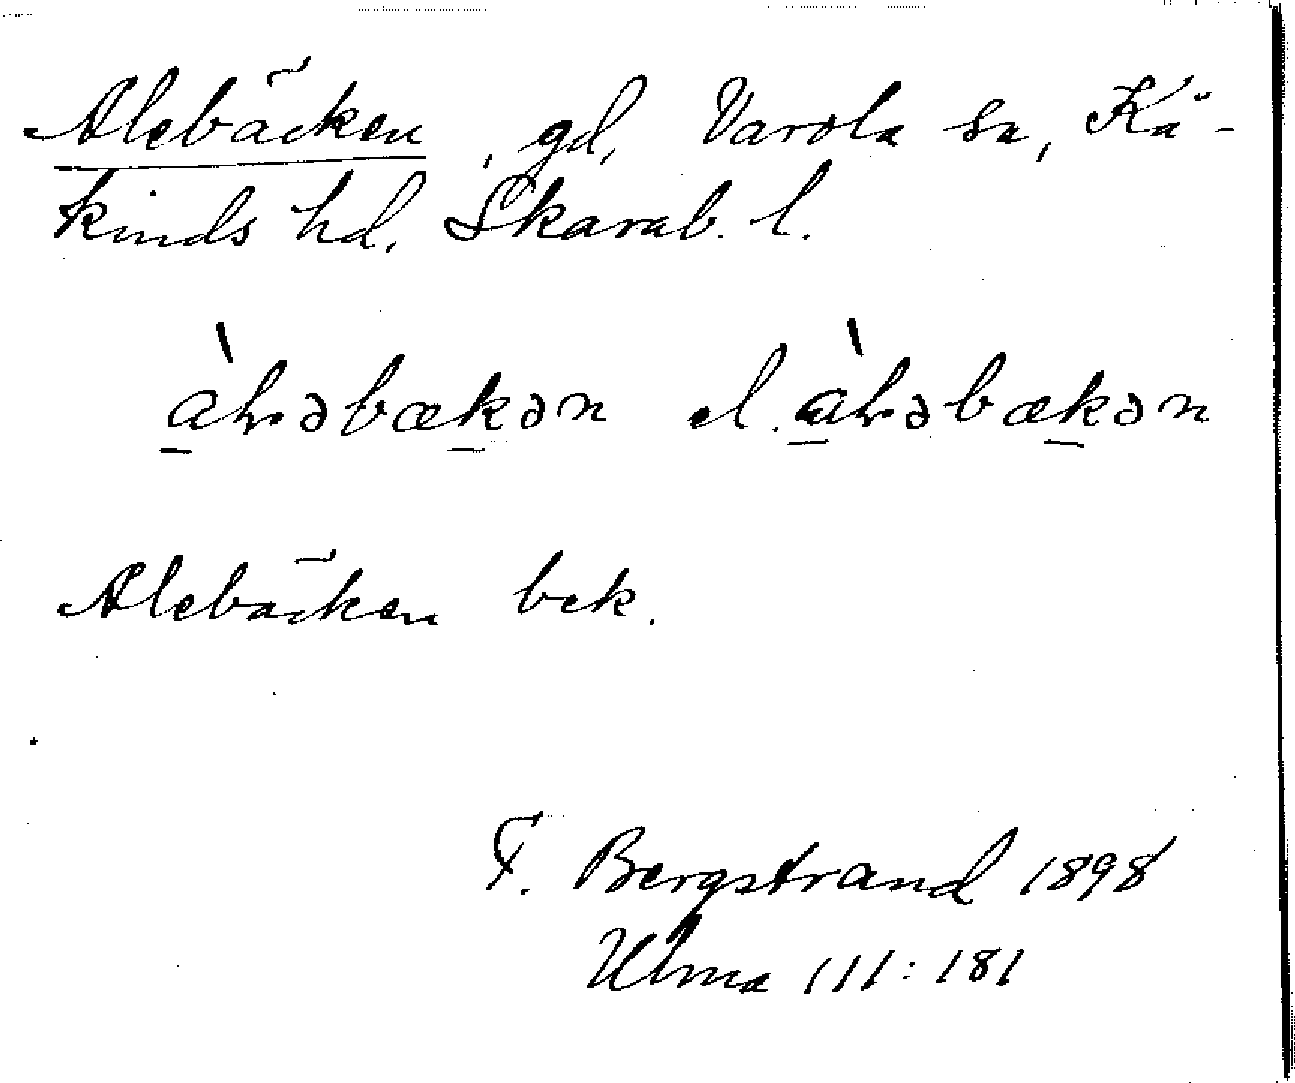 Alebäcken, gd, Varola sn, Kå-
kinds hd. Skarab. l.
àlvəbækən el. àlvəbækən
Alebäcken bek.
F. Bergstrand 1898
Ulma 111:181